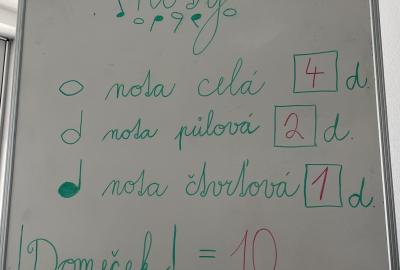 Noty
nota celá 4 d.
nota půlová 2 d.
nota čtvrťová 1 d.
Domeček = 10